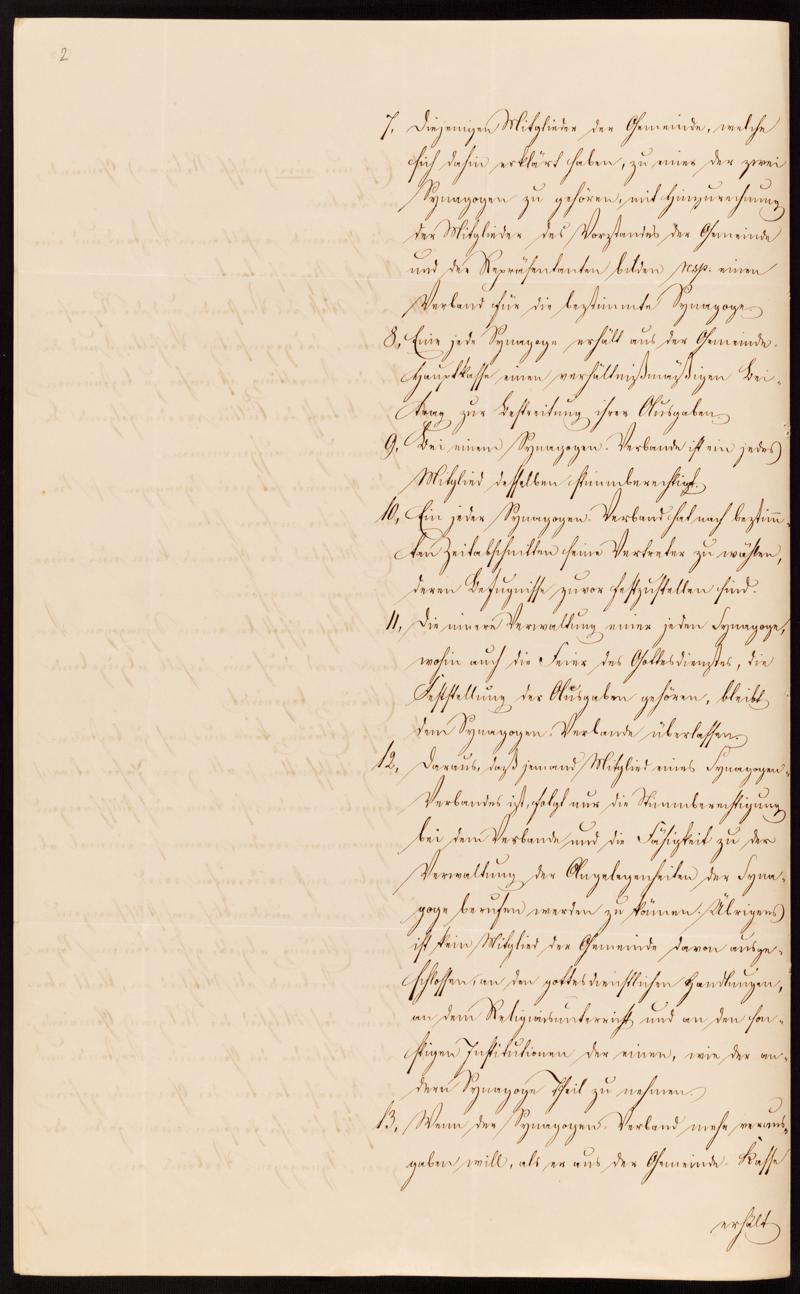 2
7, Diejenigen Mitglieder der Gemeinde, welche
sich dahin erklärt haben, zu einer der zwei
Synagogen zu gehören, mit Hinzurechnung
der Mitglieder des Vorstandes der Gemeinde
und der Repräsentanten bilden resp. einen
Verband für die bestimmte Synagoge.
8, Eine jede Synagoge erhält aus der Gemeinde-
Hauptkasse einen verhältnißmäßigen Bei-
trag zur Bestreitung ihrer Ausgaben.
9, Bei einem Synagogen-Verbande ist ein jedes
Mitglied desselben stimmberechtigt.
10, Ein jeder Synagogen-Verband hat nach bestim̅-
ten Zeitabschnitten seine Vertreter zu wählen,
deren Befugnisse zuvor festzustellen sind.
11, Die innere Verwaltung einer jeden Synagoge,
wohin auch die Feier des Gottesdienstes, die
Feststellung der Ausgaben gehören, bleibt
dem Synagogen-Verbande überlassen.
12, Daraus, daß jemand Mitglied eines Synagogen-
Verbandes ist, folgt nur die Stimmberechtigung
bei dem Verbande und die Fähigkeit zu der
Verwaltung der Angelegenheiten der Syna-
goge berufen werden zu können. Übrigens
ist kein Mitglied der Gemeinde davon ausge-
schlossen, an den gottesdienstlichen Handlungen,
an dem Religionsunterricht und an den son-
stigen Institutionen der einen, wie der an-
dern Synagoge Theil zu nehmen.
13, Wenn der Synagogen-Verband mehr veraus-
gaben will, als er aus der Gemeinde-Kasse
erhält